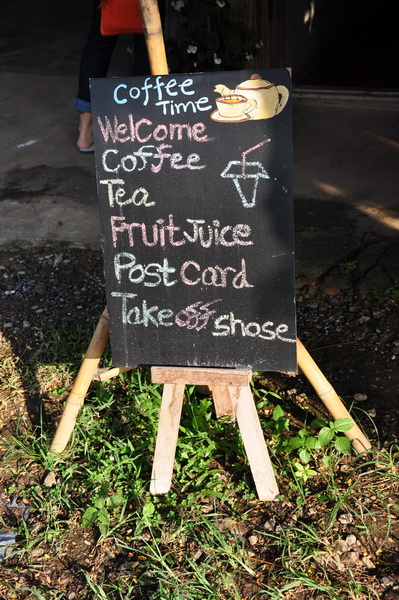 Coffee
Time
Welcome
Coffee
Tea
Fruit Juice
Post Card
Take off shose